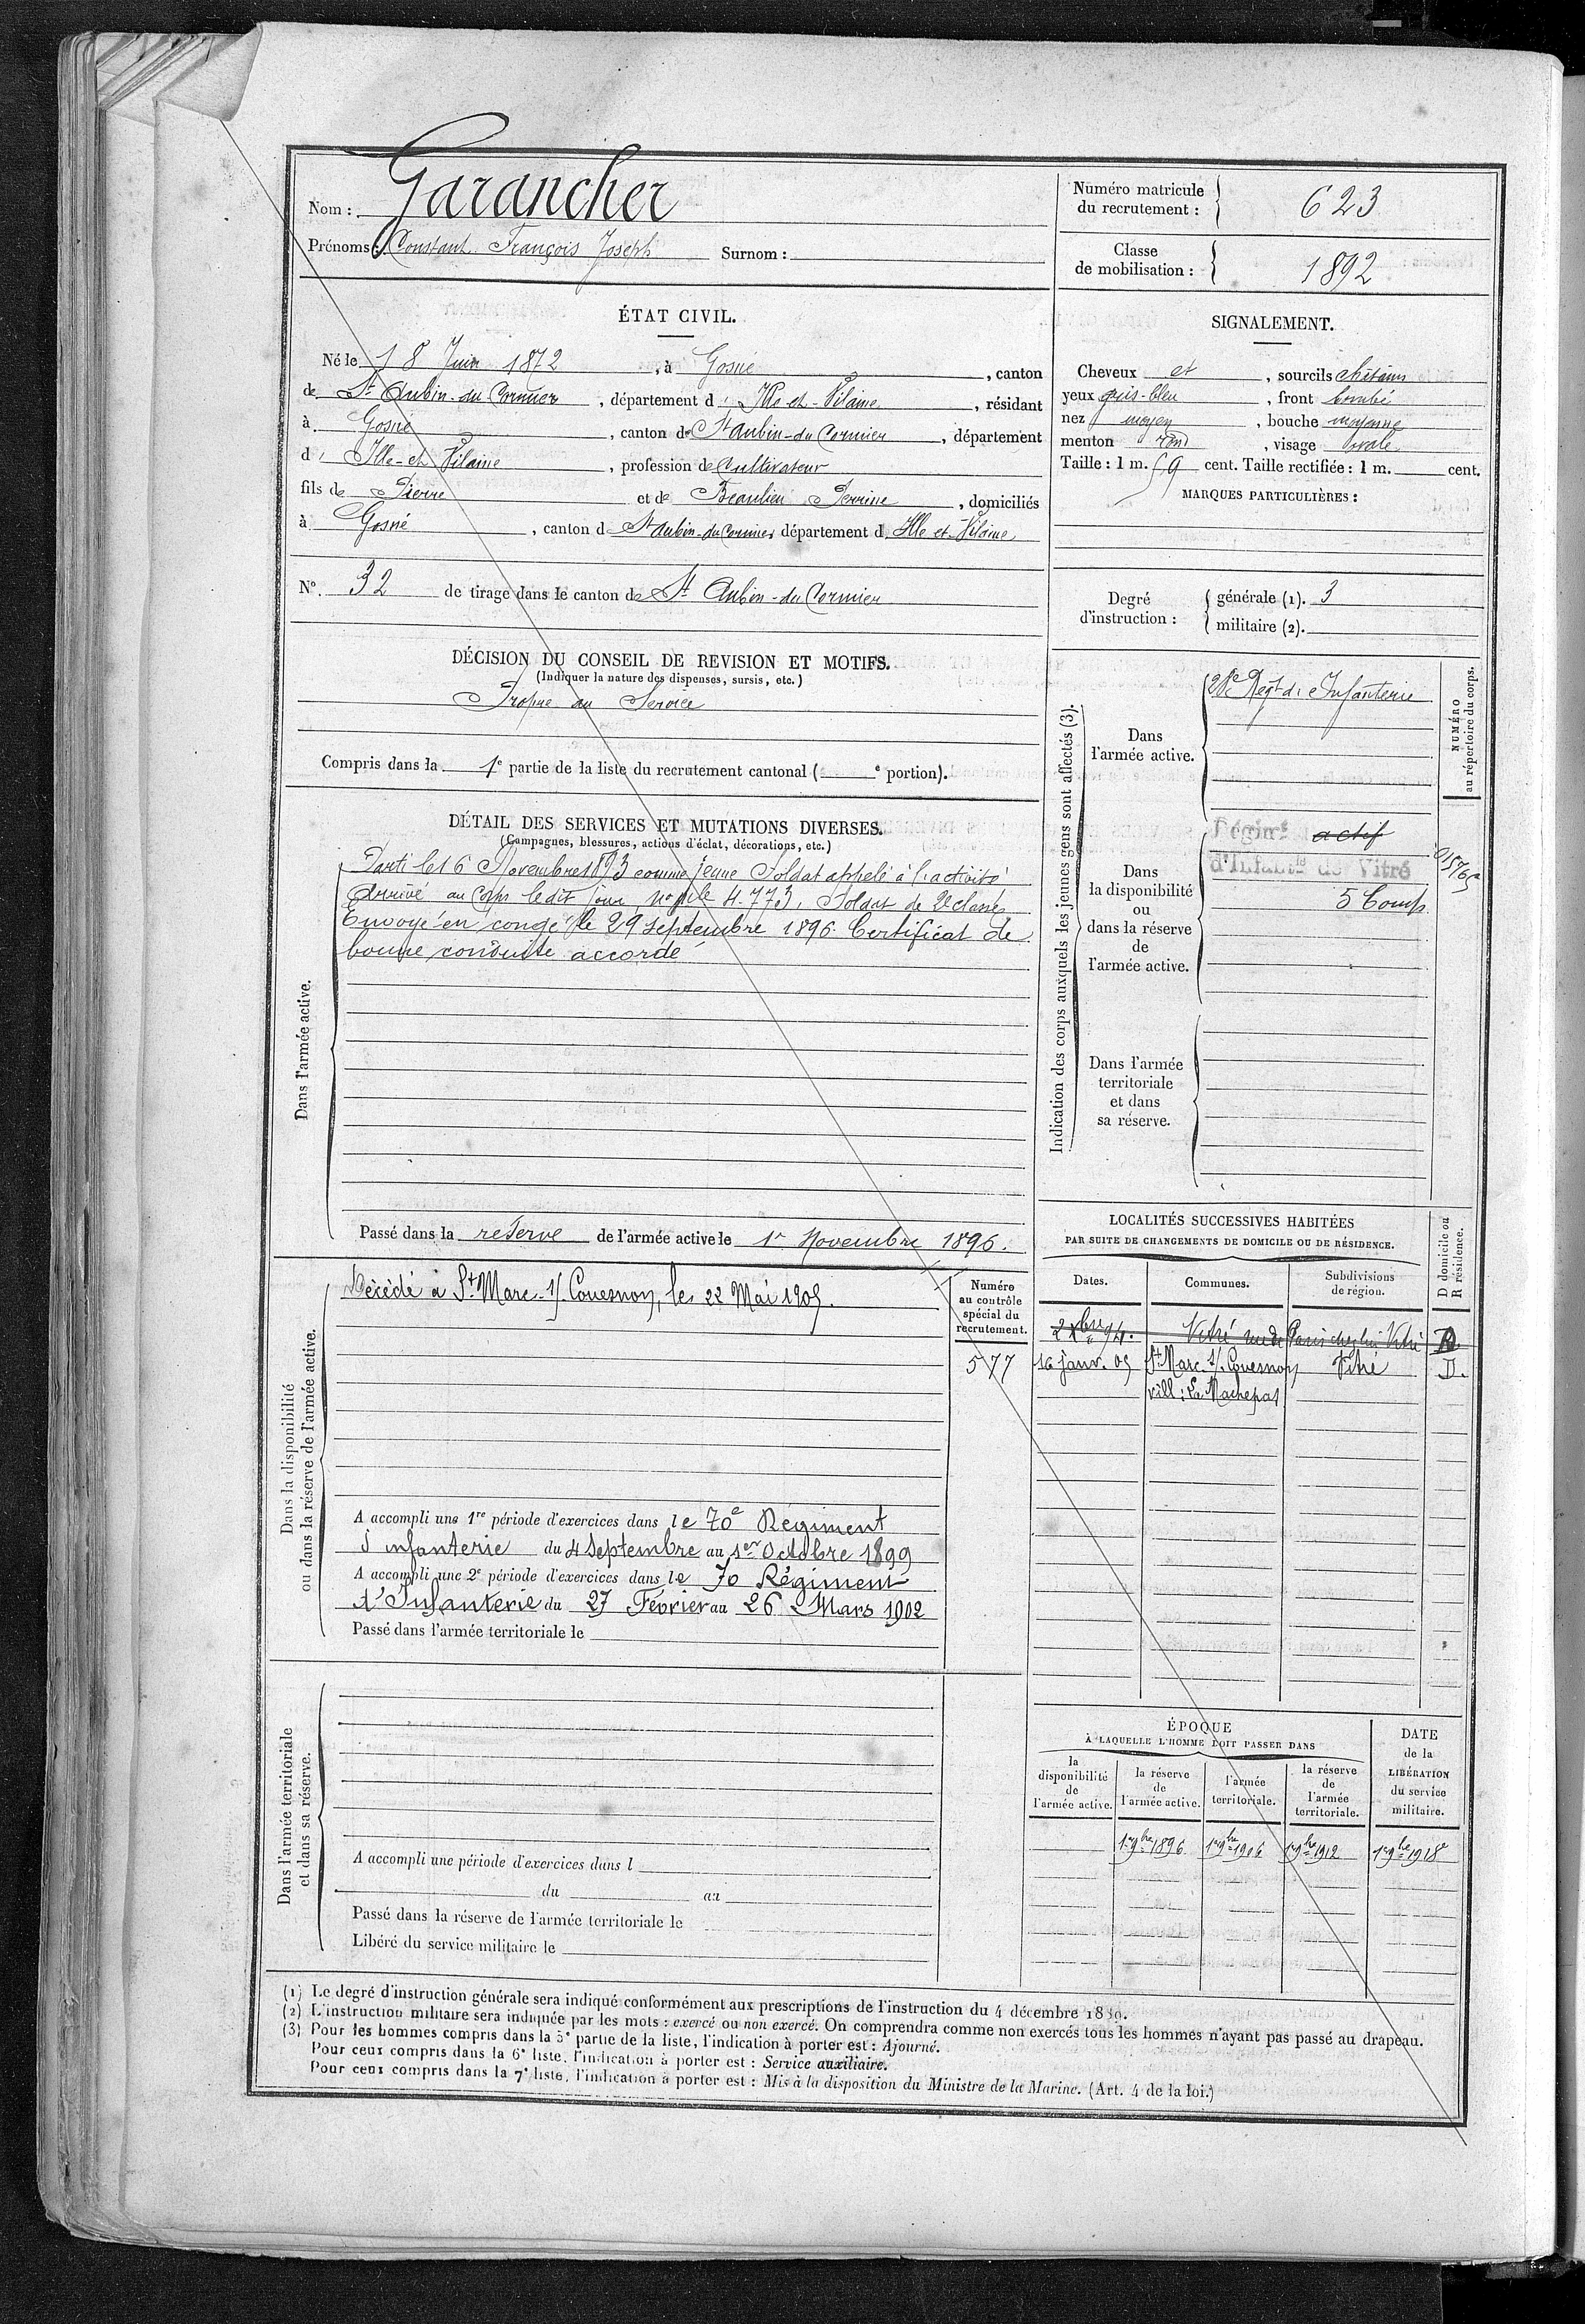 Nom : Garancher
Prénoms : Constant François Joseph Surnom :
Numéro matricule du recrutement : 623
Classe de mobilisation : 1892
ÉTAT CIVIL.
Né le 18 Juin 1872, à Gosné, canton
de St Aubin-du-Cormier, département d' Ille-et-Vilaine, résidant
à Gosné, canton de St Aubin-du Cormier, département
d' Ille-et-Vilaine, profession de Cultivateur
fils de Pierre et de Beaulieu Perrine, domiciliés
à Gosné, canton d St Aubin-du Cormier département d Ille et-Vilaine
N° 32 de tirage dans le canton de St Aubin-du Cormier
SIGNALEMENT.
Cheveux et, sourcils châtains
yeux gris-bleu, front bombé
nez moyen, bouche moyenne
menton rond, visage ovale
Taille : 1 m. 59 cent. Taille rectifiée : 1 m. cent.
MARQUES PARTICULIÈRES :
Degré d'instruction :
générale (1). 3
militaire (2).
DÉCISION DU CONSEIL DE REVISION ET MOTIFS.
(Indiquer la nature des dispenses, sursis, etc.)
Propre au Service
Compris dans la 1e partie de la liste du recrutement cantonal ( e portion).
DÉTAIL DES SERVICES ET MUTATIONS DIVERSES.
(Campagnes, blessures, actions d'éclat, décorations, etc.)
Dans l'armée active.
Parti le 16 Novembre 1893 comme jeune Soldat appelé à l'activité
Arrivé au Corps ledit jour, no mle 4.773, Soldat de 2e classe
Envoyé en congé le 29 septembre 1896. Certificat de
bonne conduite accordé
Passé dans la réserve de l'armée active le 1r Novembre 1896.
Indication des corps auxquels les jeunes gens sont affectés (3).
NUMÉRO au répertoire du corps.
Dans l'armée active.
Regt d'Infanterie
Dans la disponibilité ou dans la réserve de l'armée active.
Régimt actif
d'Infanie de Vitré
5 Comp
Dans l'armée territoriale et dans sa réserve.
Dans la disponibilité
ou dans la réserve de l'armée active.
Décédé à St Marc-s/-Couesnon, le 22 Mai 1905.
Numéro au contrôle spécial du recrutement.
577
A accompli une 1re période d'exercices dans le 70e Régiment
d'infanterie du 4 Septembre au 1er Octobre 1899
A accompli une 2e période d'exercices dans le 70 Régiment
d'Infanterie du 27 Février au 26 Mars 1902
Passé dans l'armée territoriale le
LOCALITÉS SUCCESSIVES HABITÉES
PAR SUITE DE CHANGEMENTS DE DOMICILE OU DE RÉSIDENCE.
Dates. Communes. Subdivisions de région. D domicile ou R résidence.
2 Xbre 94. Vitré rue de Paris Vitré
16 janv. 05 St Marc-s/-Couesnon Vitré D.
vill : La Machepas
Dans l'armée territoriale
et dans sa réserve.
A accompli une période d'exercices dans l
du au
Passé dans la réserve de l'armée territoriale le
Libéré du service militaire le
ÉPOQUE
À LAQUELLE L'HOMME DOIT PASSER DANS
la disponibilité de l'armée active.
la réserve de l'armée active.
l'armée territoriale.
la réserve de l'armée territoriale.
DATE de la LIBÉRATION du service militaire.
1r 9bre 1896 1r 9bre 1906 1r 9bre 1912 1r 9bre 1918
(1) Le degré d'instruction générale sera indiqué conformément aux prescriptions de l'instruction du 4 décembre 1889.
(2) L'instruction militaire sera indiquée par les mots : exercé ou non exercé. On comprendra comme non exercés tous les hommes n'ayant pas passé au drapeau.
(3) Pour les hommes compris dans la 5e partie de la liste, l'indication à porter est : Ajourné.
Pour ceux compris dans la 6e liste, l'indication à porter est : Service auxiliaire.
Pour ceux compris dans la 7e liste, l'indication à porter est : Mis à la disposition du Ministre de la Marine. (Art. 4 de la loi.)